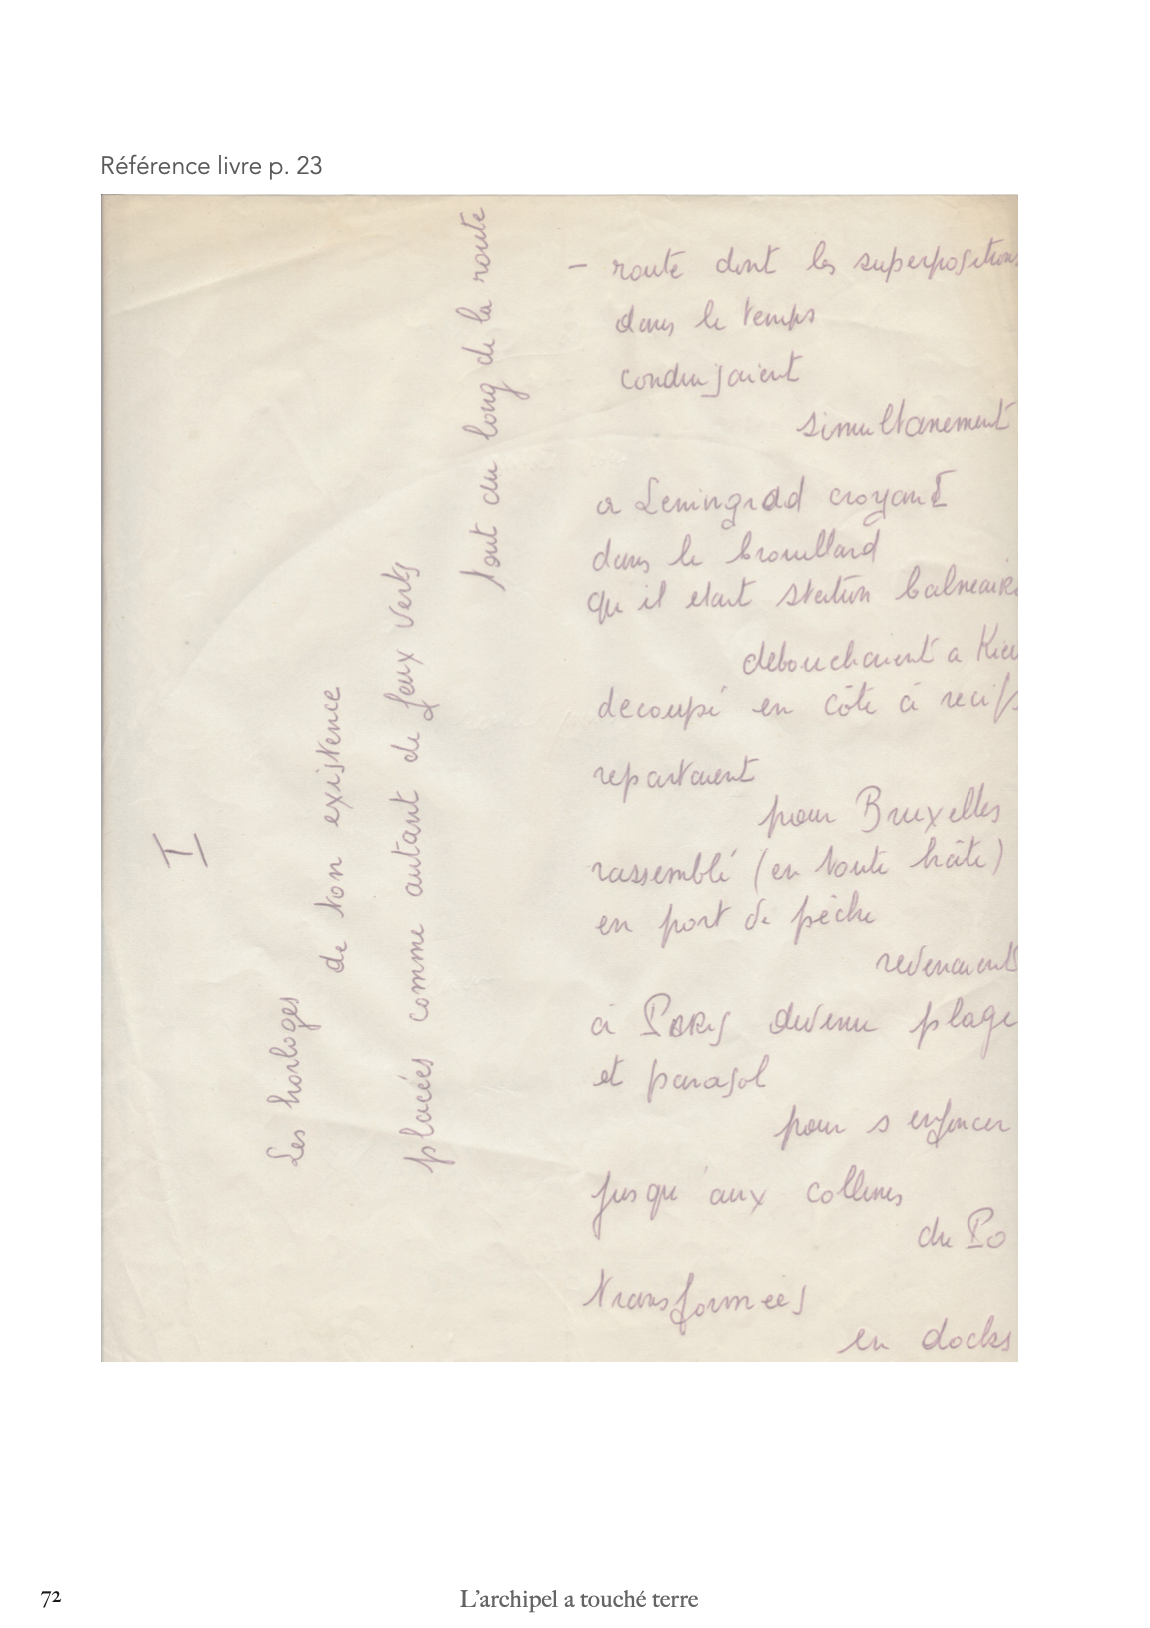 Référence livre p. 23
I
Les horloges
de ton existence
placées comme autant de feux verts
tout au long de la route
– route dont les superpositions
dans le temps
conduisaient
simultanement
a Leningrad croyant
dans le brouillard
qu il etait station balneaire
debouchaient a Kiev
decoupé en côte à recifs
repartaient
pour Bruxelles
rassemblé (en toute hâte)
en port de pêche
revenaient
à PARis devenu plage
et parasol
pour s enfoncer
jusqu'aux collines
du Po
transformées
en docks
72
L'archipel a touché terre